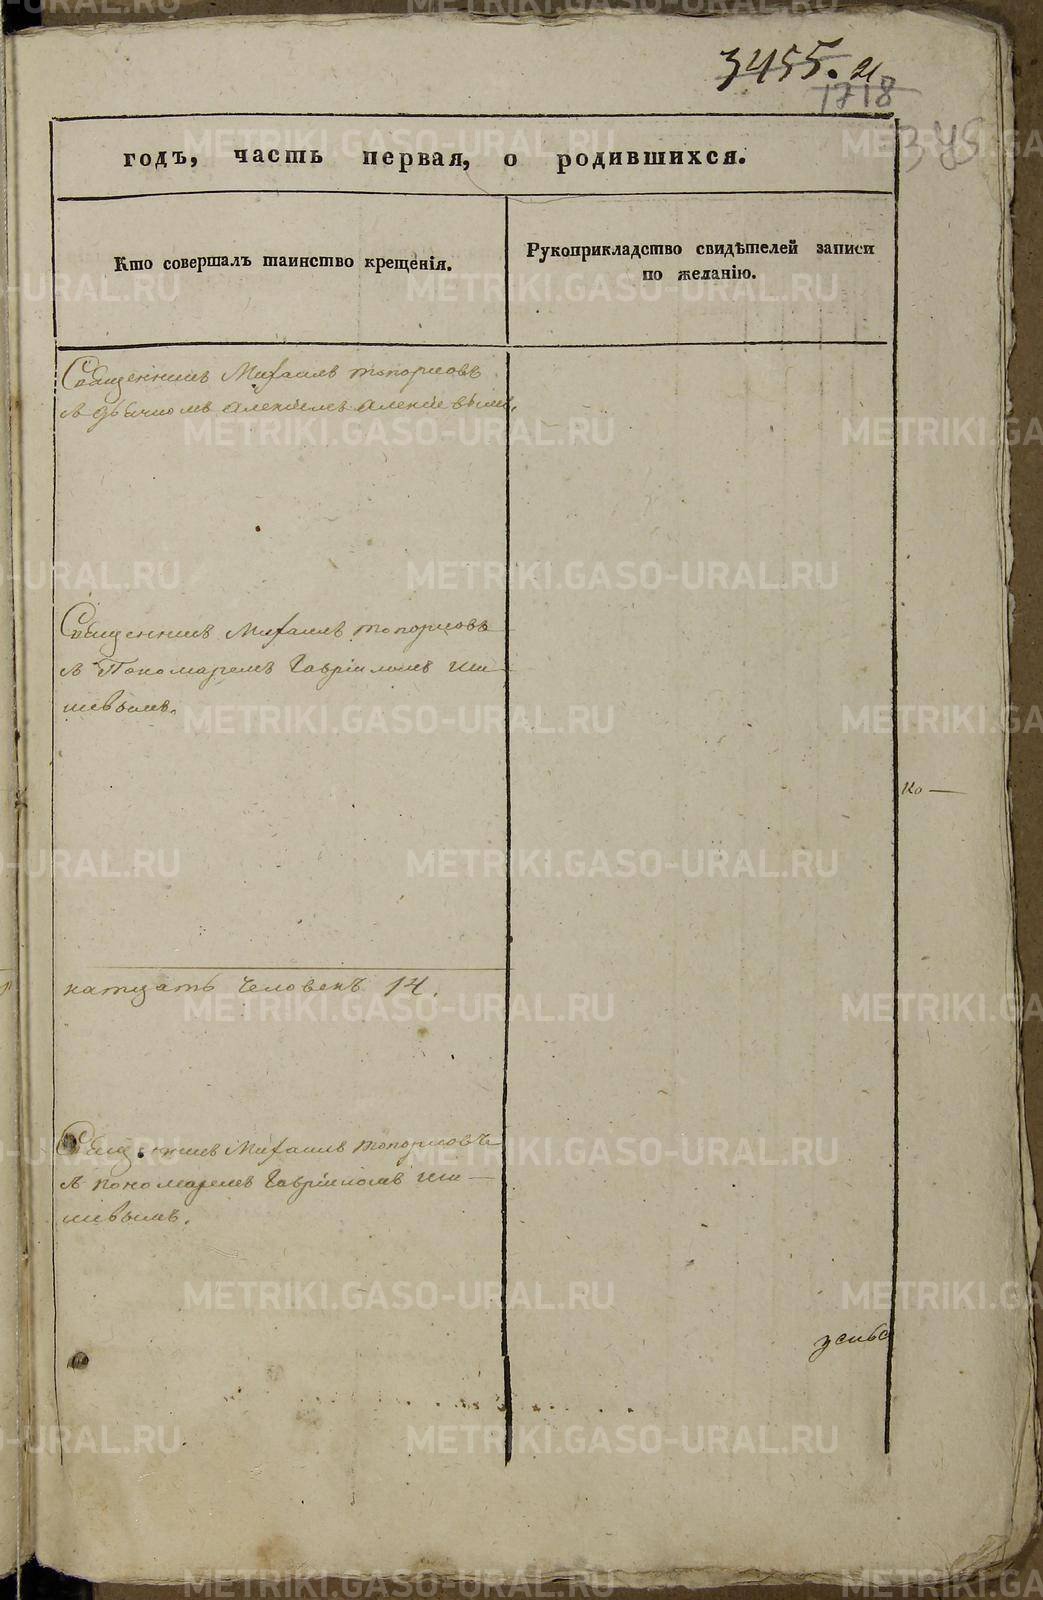 3455. 21
1718
345
годъ, часть первая, о родившихся.
Кто совершалъ таинство крещенія.
Рукоприкладство свидѣтелей записи
по желанію.
Священникъ Михаилъ Топорковъ
съ дьячкомъ Алексѣемъ
Священникъ Михаилъ Топорковъ
съ Пономаремъ Гавріиломъ Ши
шевымъ.
ко —
натцать человекъ 14.
Священникъ Михаилъ Топорковъ
съ пономаремъ Гавріиломъ Ши —
шевымъ.
METRIKI.GASO-URAL.RU